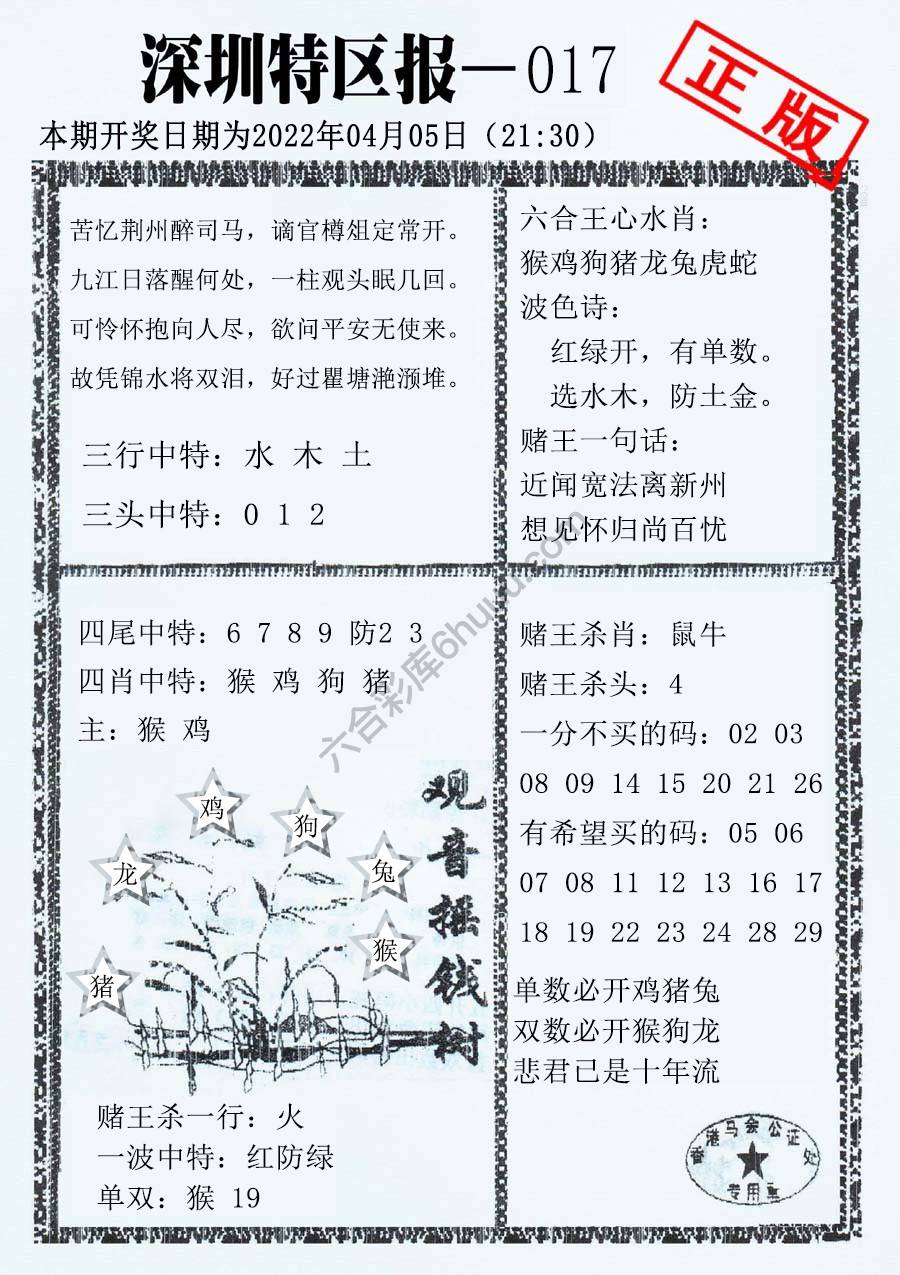 深圳特区报—017
正版
本期开奖日期为2022年04月05日（21:30）
苦忆荆州醉司马，谪官樽俎定常开。
九江日落醒何处，一柱观头眠几回。
可怜怀抱向人尽，欲问平安无使来。
故凭锦水将双泪，好过瞿塘滟滪堆。
三行中特：水 木 土
三头中特：0 1 2
六合王心水肖：
猴鸡狗猪龙兔虎蛇
波色诗：
红绿开，有单数。
选水木，防土金。
赌王一句话：
近闻宽法离新州
想见怀归尚百忧
四尾中特：6 7 8 9 防2 3
四肖中特：猴 鸡 狗 猪
主：猴 鸡
鸡
狗
龙
兔
猴
猪
观音摇钱树
赌王杀一行：火
一波中特：红防绿
单双：猴 19
赌王杀肖：鼠牛
赌王杀头：4
一分不买的码：02 03
08 09 14 15 20 21 26
有希望买的码：05 06
07 08 11 12 13 16 17
18 19 22 23 24 28 29
单数必开鸡猪兔
双数必开猴狗龙
悲君已是十年流
香港马会公证处
专用章
六合彩库6huuu.com